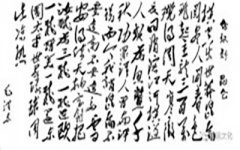 念奴娇 昆仑
横空出世莽昆仑
阅尽人间春色
飞起玉龙三百万
搅得周天寒彻
夏日消溶江河横溢
人或为鱼鳖千
秋功罪谁人曾与评
说而今我谓昆仑
不要这高不要这多雪
安得倚天抽宝剑把
汝裁为三截一截遗欧
一截赠美一截还
太平世界环球同
此凉热
毛泽东